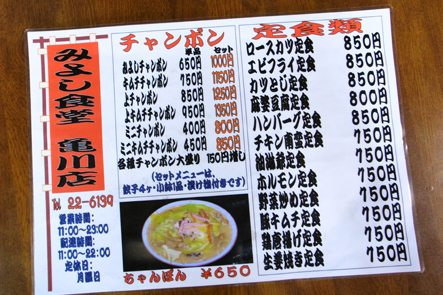 みよし食堂 亀川店
Tel 22-6139
営業時間:
11:00~23:00
配達時間:
11:00~22:00
定休日:
月曜日
チャンポン
単品 セット
みよしチャンポン 650円 1000円
キムチチャンポン 750円 1150円
上チャンポン 850円 1250円
上キムチチャンポン 950円 1350円
ミニチャンポン 400円 800円
ミニキムチチャンポン 450円 850円
各種チャンポン大盛り 150円増し
(セットメニューは、
餃子4ヶ・小鉢1品・漬け物付きです)
ちゃんぽん ¥650
定食類
ロースカツ定食 850円
エビフライ定食 850円
カツとじ定食 850円
麻婆豆腐定食 800円
ハンバーグ定食 850円
チキン南蛮定食 750円
定食 750円
ホルモン定食 750円
野菜炒め定食 750円
豚キムチ定食 750円
鶏唐揚げ定食 750円
生姜焼き定食 750円